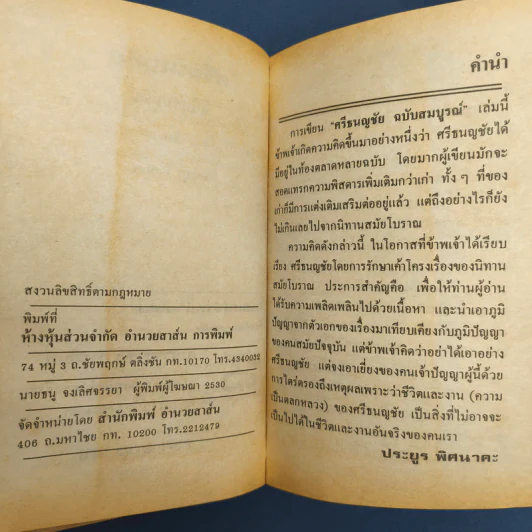 สงวนลิขสิทธิ์ตามกฎหมาย
พิมพ์ที่
ห้างหุ้นส่วนจำกัด อำนวยสาส์น การพิมพ์
74 หมู่ 3 ถ.ชัยพฤกษ์ ตลิ่งชัน กท.10170 โทร.4340032
นายธนู จงเลิศจรรยา ผู้พิมพ์ผู้โฆษณา 2530
จัดจำหน่ายโดย สำนักพิมพ์ อำนวยสาส์น
406 ถ.มหาไชย กท. 10200 โทร.2212479
คำนำ
การเขียน "ศรีธนญชัย ฉบับสมบูรณ์" เล่มนี้
ข้าพเจ้าเกิดความคิดขึ้นมาอย่างหนึ่งว่า ศรีธนญชัยได้
มีอยู่ในท้องตลาดหลายฉบับ โดยมากผู้เขียนมักจะ
สอดแทรกความพิสดารเพิ่มเติมกว่าเก่า ทั้ง ๆ ที่ของ
เก่าก็มีการแต่งเติมเสริมต่ออยู่แล้ว แต่ถึงอย่างไรก็ยัง
ไม่เกินเลยไปจากนิทานสมัยโบราณ
ความคิดดังกล่าวนี้ ในโอกาสที่ข้าพเจ้าได้เรียบ
เรียง ศรีธนญชัยโดยการรักษาเค้าโครงเรื่องของนิทาน
สมัยโบราณ ประการสำคัญคือ เพื่อให้ท่านผู้อ่าน
ได้รับความเพลิดเพลินไปด้วยเนื้อหา และนำเอาภูมิ
ปัญญาจากตัวเอกของเรื่องมาเทียบเคียงกับภูมิปัญญา
ของคนสมัยปัจจุบัน แต่ข้าพเจ้าคิดว่าอย่าได้เอาอย่าง
ศรีธนญชัย แต่จงเอาเยี่ยงของคนเจ้าปัญญาผู้นี้ด้วย
การไตร่ตรองถึงเหตุผลเพราะว่าชีวิตและงาน (ความ
เป็นตลกหลวง) ของศรีธนญชัย เป็นสิ่งที่ไม่อาจจะ
เป็นไปได้ในชีวิตและงานอันจริงของคนเรา
ประยูร พิศนาคะ